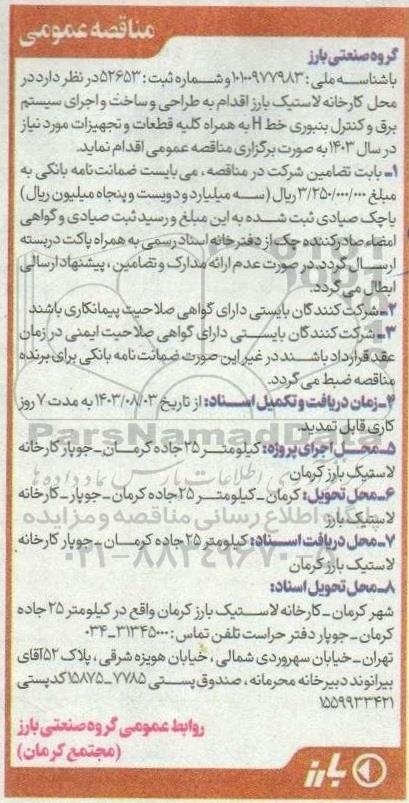 مناقصه عمومی
گروه صنعتی بارز
باشناسه ملی: ۱۰۱۰۰۹۷۷۹۸۳ و شماره ثبت: ۵۲۶۵۳ در نظر دارد در
محل کارخانه لاستیک بارز اقدام به طراحی و ساخت و اجرای سیستم
برق و کنترل بنبوری خط H به همراه کلیه قطعات و تجهیزات مورد نیاز
در سال ۱۴۰۳ به صورت برگزاری مناقصه عمومی اقدام نماید.
۱- بابت تضامین شرکت در مناقصه، می بایست ضمانت نامه بانکی به
مبلغ ۳/۲۵۰/۰۰۰/۰۰۰ ریال (سه میلیارد و دویست و پنجاه میلیون ریال)
یا چک صیادی ثبت شده به این مبلغ و رسید ثبت صیادی و گواهی
امضاء صادرکننده چک از دفترخانه اسناد رسمی به همراه پاکت دربسته
ارسال گردد. در صورت عدم ارائه مدارک و تضامین، پیشنهاد ارسالی
ابطال می گردد.
۲- شرکت کنندگان بایستی دارای گواهی صلاحیت پیمانکاری باشند
۳- شرکت کنندگان بایستی دارای گواهی صلاحیت ایمنی در زمان
عقد قرارداد باشند در غیر این صورت ضمانت نامه بانکی برای برنده
مناقصه ضبط می گردد.
۴- زمان دریافت و تکمیل اسناد: از تاریخ ۱۴۰۳/۰۸/۰۳ به مدت ۷ روز
کاری قابل تمدید.
۵- محل اجرای پروژه: کیلومتر ۲۵ جاده کرمان - جوپار کارخانه
لاستیک بارز کرمان
۶- محل تحویل: کرمان - کیلومتر ۲۵ جاده کرمان - جوپار - کارخانه
لاستیک بارز
۷- محل دریافت اسناد: کیلومتر ۲۵ جاده کرمان - جوپار کارخانه
لاستیک بارز کرمان
۸- محل تحویل اسناد:
شهر کرمان - کارخانه لاستیک بارز کرمان واقع در کیلومتر ۲۵ جاده
کرمان - جوپار دفتر حراست تلفن تماس: ۳۱۳۴۵۰۰۰-۰۳۴
تهران - خیابان سهروردی شمالی، خیابان هویزه شرقی، پلاک ۵۲ آقای
بیرانوند دبیرخانه محرمانه، صندوق پستی ۷۷۸۵-۱۵۸۷۵ کدپستی
۱۵۵۹۹۳۳۴۲۱
روابط عمومی گروه صنعتی بارز
(مجتمع کرمان)
بارز
ParsNamadData
پایگاه اطلاع رسانی مناقصه و مزایده
۰۲۱-۸۸۳۴۹۶۷۰-۵